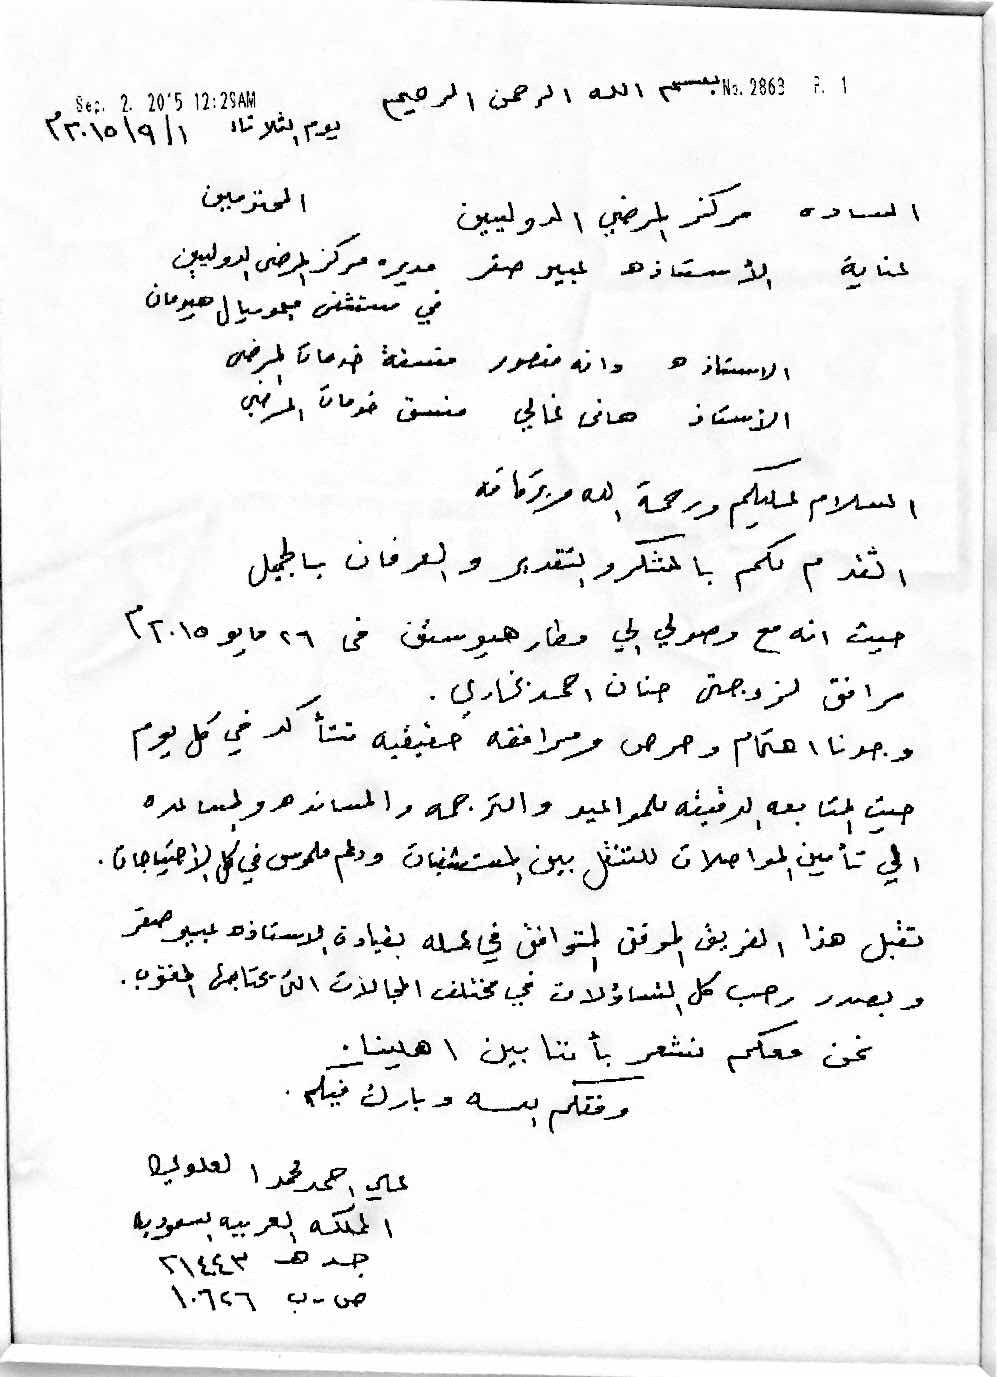 Sep. 2. 2015 12:29AM
No. 2863 P. 1
بسم الله الرحمن الرحيم
يوم الثلاثاء ١/٩/٢٠١٥م
الساده مركز المرضي الدوليين المحترمين
لعناية الأستاذه عبير صقر مديره مركز المرضى الدوليين
في مستشفى ميموريال هيرمان
الاستاذه دانه منصور منسقة خدمات المرضى
الأستاذ هانى غالي منسق خدمات المرضي
السلام عليكم ورحمة الله وبركاته
اتقدم لكم بالشكر والتقدير والعرفان بالجميل
حيث انه مع وصولي الي مطار هيوستن فى ٢٦ مايو ٢٠١٥م
مرافق لزوجتى حنان احمد بخاري .
وجدنا اهتمام وحرص ومرافقه حقيقيه تتأكد في كل يوم
حيث المتابعه الدقيقه للمواعيد والترجمه والمسانده والمساعده
الي تأمين المواصلات للتنقل بين المستشفيات ودعم ملموس في كل الاحتياجات .
تقبل هذا الفريق الموفق المتوافق في عمله بقيادة الاستاذه عبير صقر
وبصدر رحب كل التساؤلات في مختلف المجالات التى يحتاجها المغترب .
نحن معكم نشعر بأننا بين اهلينا .
وفقكم الله وبارك فيكم .
علي احمد محمد العلولي
المملكه العربيه السعوديه
جده ٢١٤٤٣
ص.ب ١٠٦٢٦